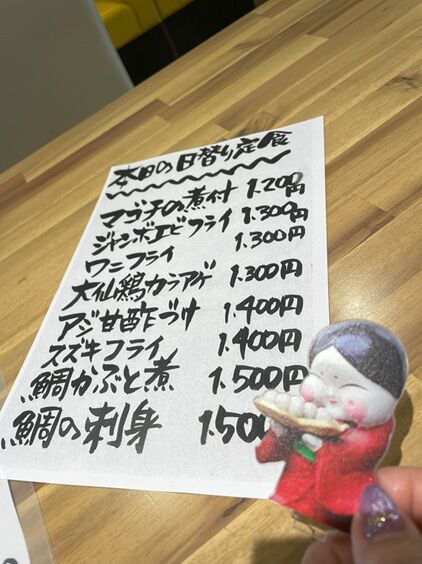 本日の日替り定食
マゴチの煮付 1.200円
ジャンボエビフライ 1.300円
ワニフライ 1.300円
大仙鶏カラアゲ 1.300円
アジ甘酢づけ 1.400円
スズキフライ 1.400円
鯛かぶと煮 1.500円
鯛の刺身 1.50